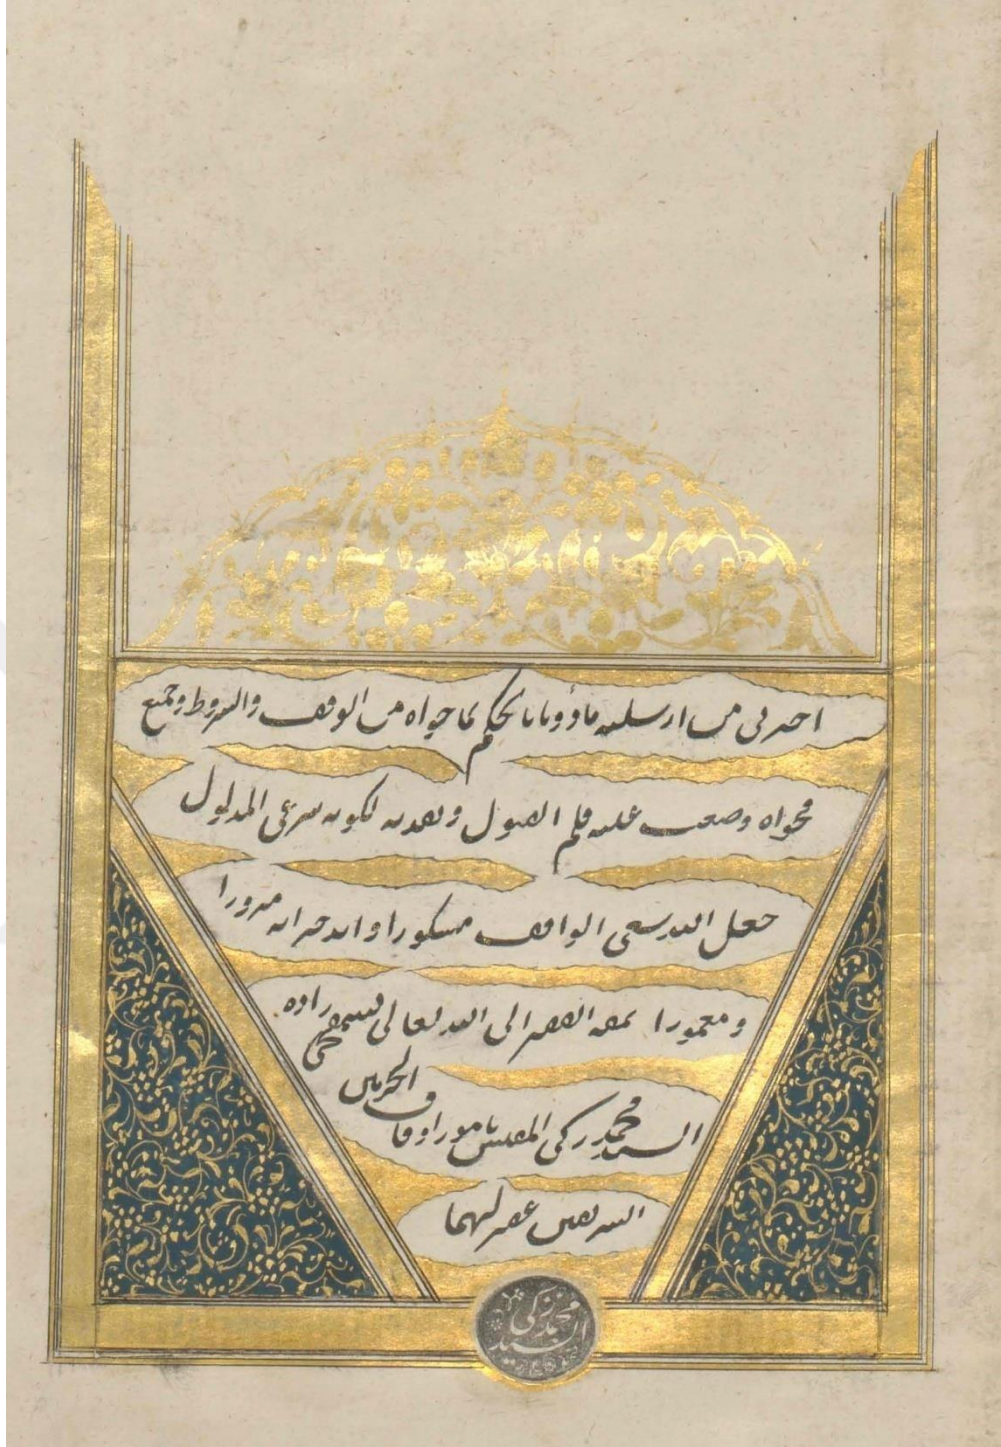 اخبرنى من ارسلته مأذونا بالحكم بما حواه من الوقف والشروط وجميع
فحواه وضعت عليه قلم القبول ونفذته لكونه شرعى المدلول
جعل الله سعى الواقف مشكورا وابد خيراته مبرورا
ومعمورا نمقه الفقير الى الله تعالى زاده
السيد محمد زكى المفتش بامور اوقاف الحرمين
الشريفين غفر لهما
السيد محمد زكى